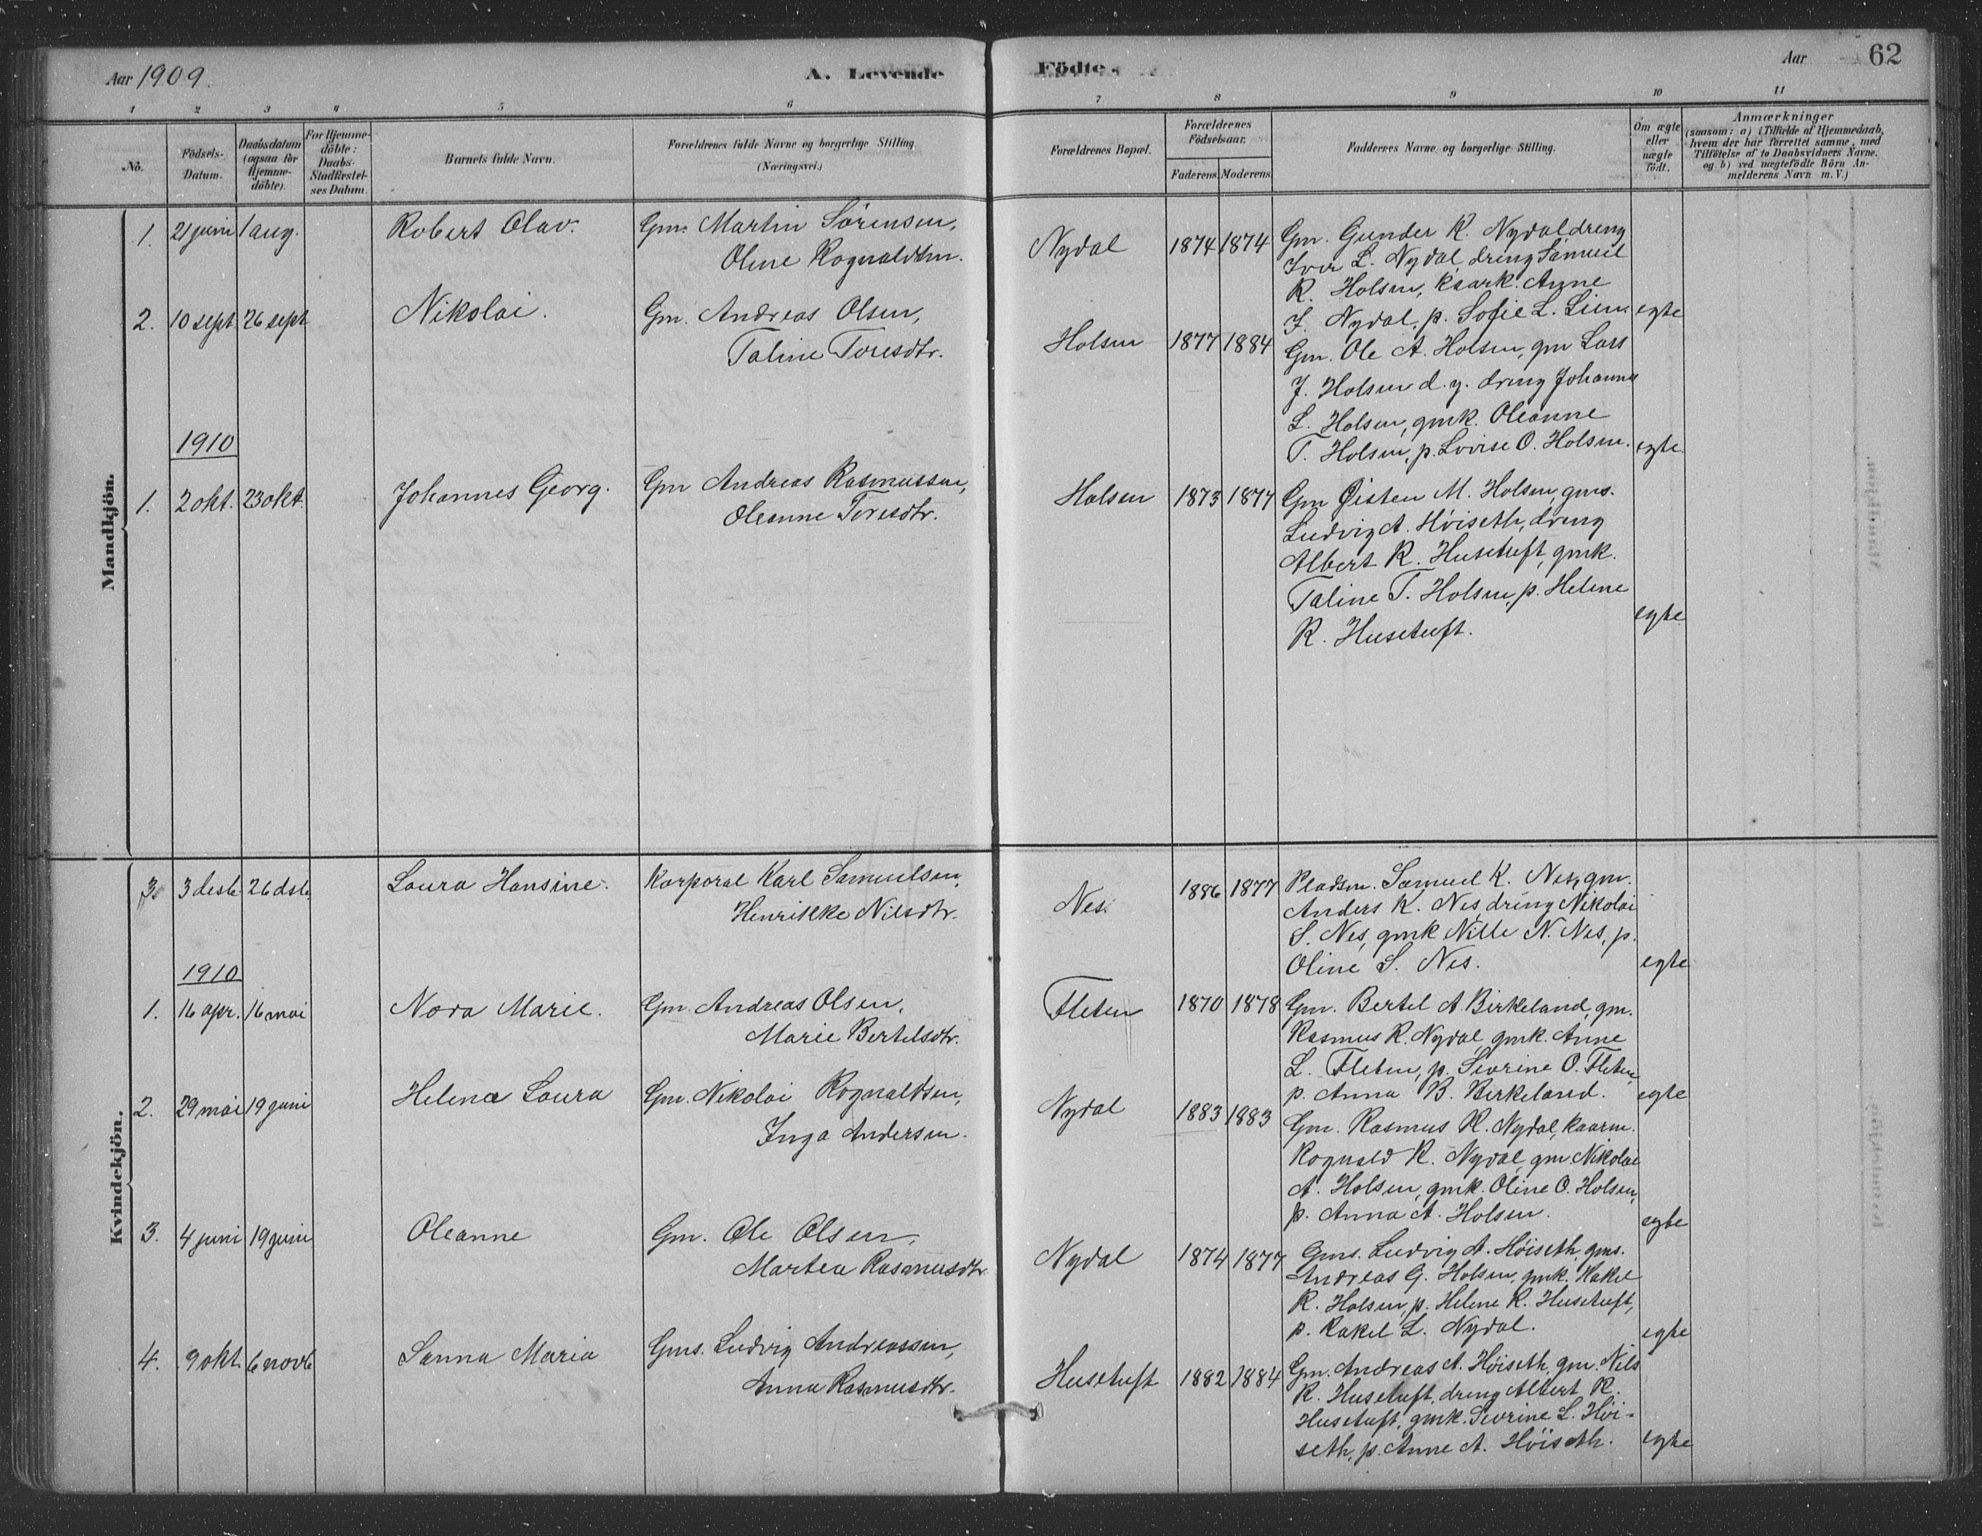 Aar 1909.
A. Levende
Födte.
Aar
62
1 2 3 4 5 6 7 8 9 10 11
No.
Födsels-
Datum.
Daabsdatum
(ogsaa for
Hjemme-
döbte).
For Hjemme-
döbte:
Daabs-
Stadfæstel-
ses Datum.
Barnets fulde Navn.
Forældrenes fulde Navne og borgerlige Stilling
(Næringsvei.)
Forældrenes Bopæl.
Forældrenes
Födselsaar.
Faderens Moderens
Faddernes Navne og borgerlige Stilling.
Om ægte
eller
uægte
födt.
Anmærkninger
(saasom: a) i Tilfælde af Hjemmedaab,
hvem der har forrettet samme, med
Tilföielse af to Daabsvidners Navne.
og b) ved uægtefödte Börn An-
melderens Navn m. V.)
Mandkjön.
1. 21 juni 1 aug. Robert Olav. Gm. Martin Sørensen,
Oline Rognaldsen.
Nydal 1874 1874
Gm. Gunder R. Nydal dreng
Iver L. Nydal, dreng Samuel
R. Holsen, kaark. Anne
J. Nydal, p. Sofie L. Liem egte
2. 10 sept 26 sept Nikolai. Gm. Andreas Olsen,
Taline Toresdtr.
Holsen 1877 1884
Gm. Ole A. Holsen, gm Lars
J. Holsen d. y. dreng Johannes
L. Holsen, gmk. Oleanne
T. Holsen, p. Lovise O. Holsen. egte
1910
1. 2 okt. 23 okt. Johannes Georg. Gm Andreas Rasmussen,
Oleanne Toresdtr.
Holsen 1873 1877
Gm Øisten M. Holsen, gms.
Ludvig A. Høiseth, dreng
Albert R. Husetuft, gmk.
Taline T. Holsen, p. Helene
R. Husetuft. egte
Kvindekjön.
3. 3 desb. 26 dsb. Laura Hansine. Korporal Karl Samuelsen,
Henrikke Nilsdtr.
Nes. 1886 1877
Pladsm. Samuel K. Nes, gm.
Anders K. Nes, dreng Nikolai
S. Nes, gmk Nille N. Nes, p.
Oline S. Nes. egte
1910
1. 16 apr. 16 mai Nora Marie. Gm. Andreas Olsen,
Marie Bertelsdtr.
Fleten 1870 1878
Gm. Bertel A Birkeland, gm.
Rasmus R. Nydal, gmk. Anne
L. Fleten, p. Sevrine O. Fleten,
p. Anna B. Birkeland. egte
2. 29 mai 19 juni Helena Laura Gm. Nikolai Rognaldsen,
Inga Andersen.
Nydal 1883 1883
Gm. Rasmus R. Nydal, kaarm.
Rognald R. Nydal, gm Nikolai
A. Holsen, gmk. Oline O. Holsen,
p. Anna A. Holsen. egte
3. 4 juni 19 juni Oleanne Gm. Ole Olsen,
Martea Rasmusdtr
Nydal 1874 1877
Gms. Ludvig A. Høiseth, gms.
Andreas G. Holsen, gmk. Rakel
R. Holsen, p. Helene R. Husetuft,
p. Rakel L. Nydal. egte
4. 9 okt. 6 novb Sanna Maria Gms. Ludvig Andreassen,
Anna Rasmusdtr.
Husetuft 1882 1884
Gm. Andreas A. Høiseth, gm. Nils
R. Husetuft, dreng Albert R.
Husetuft, gmk. Sevrine L. Høi-
seth, p. Anne A. Høiseth. egte